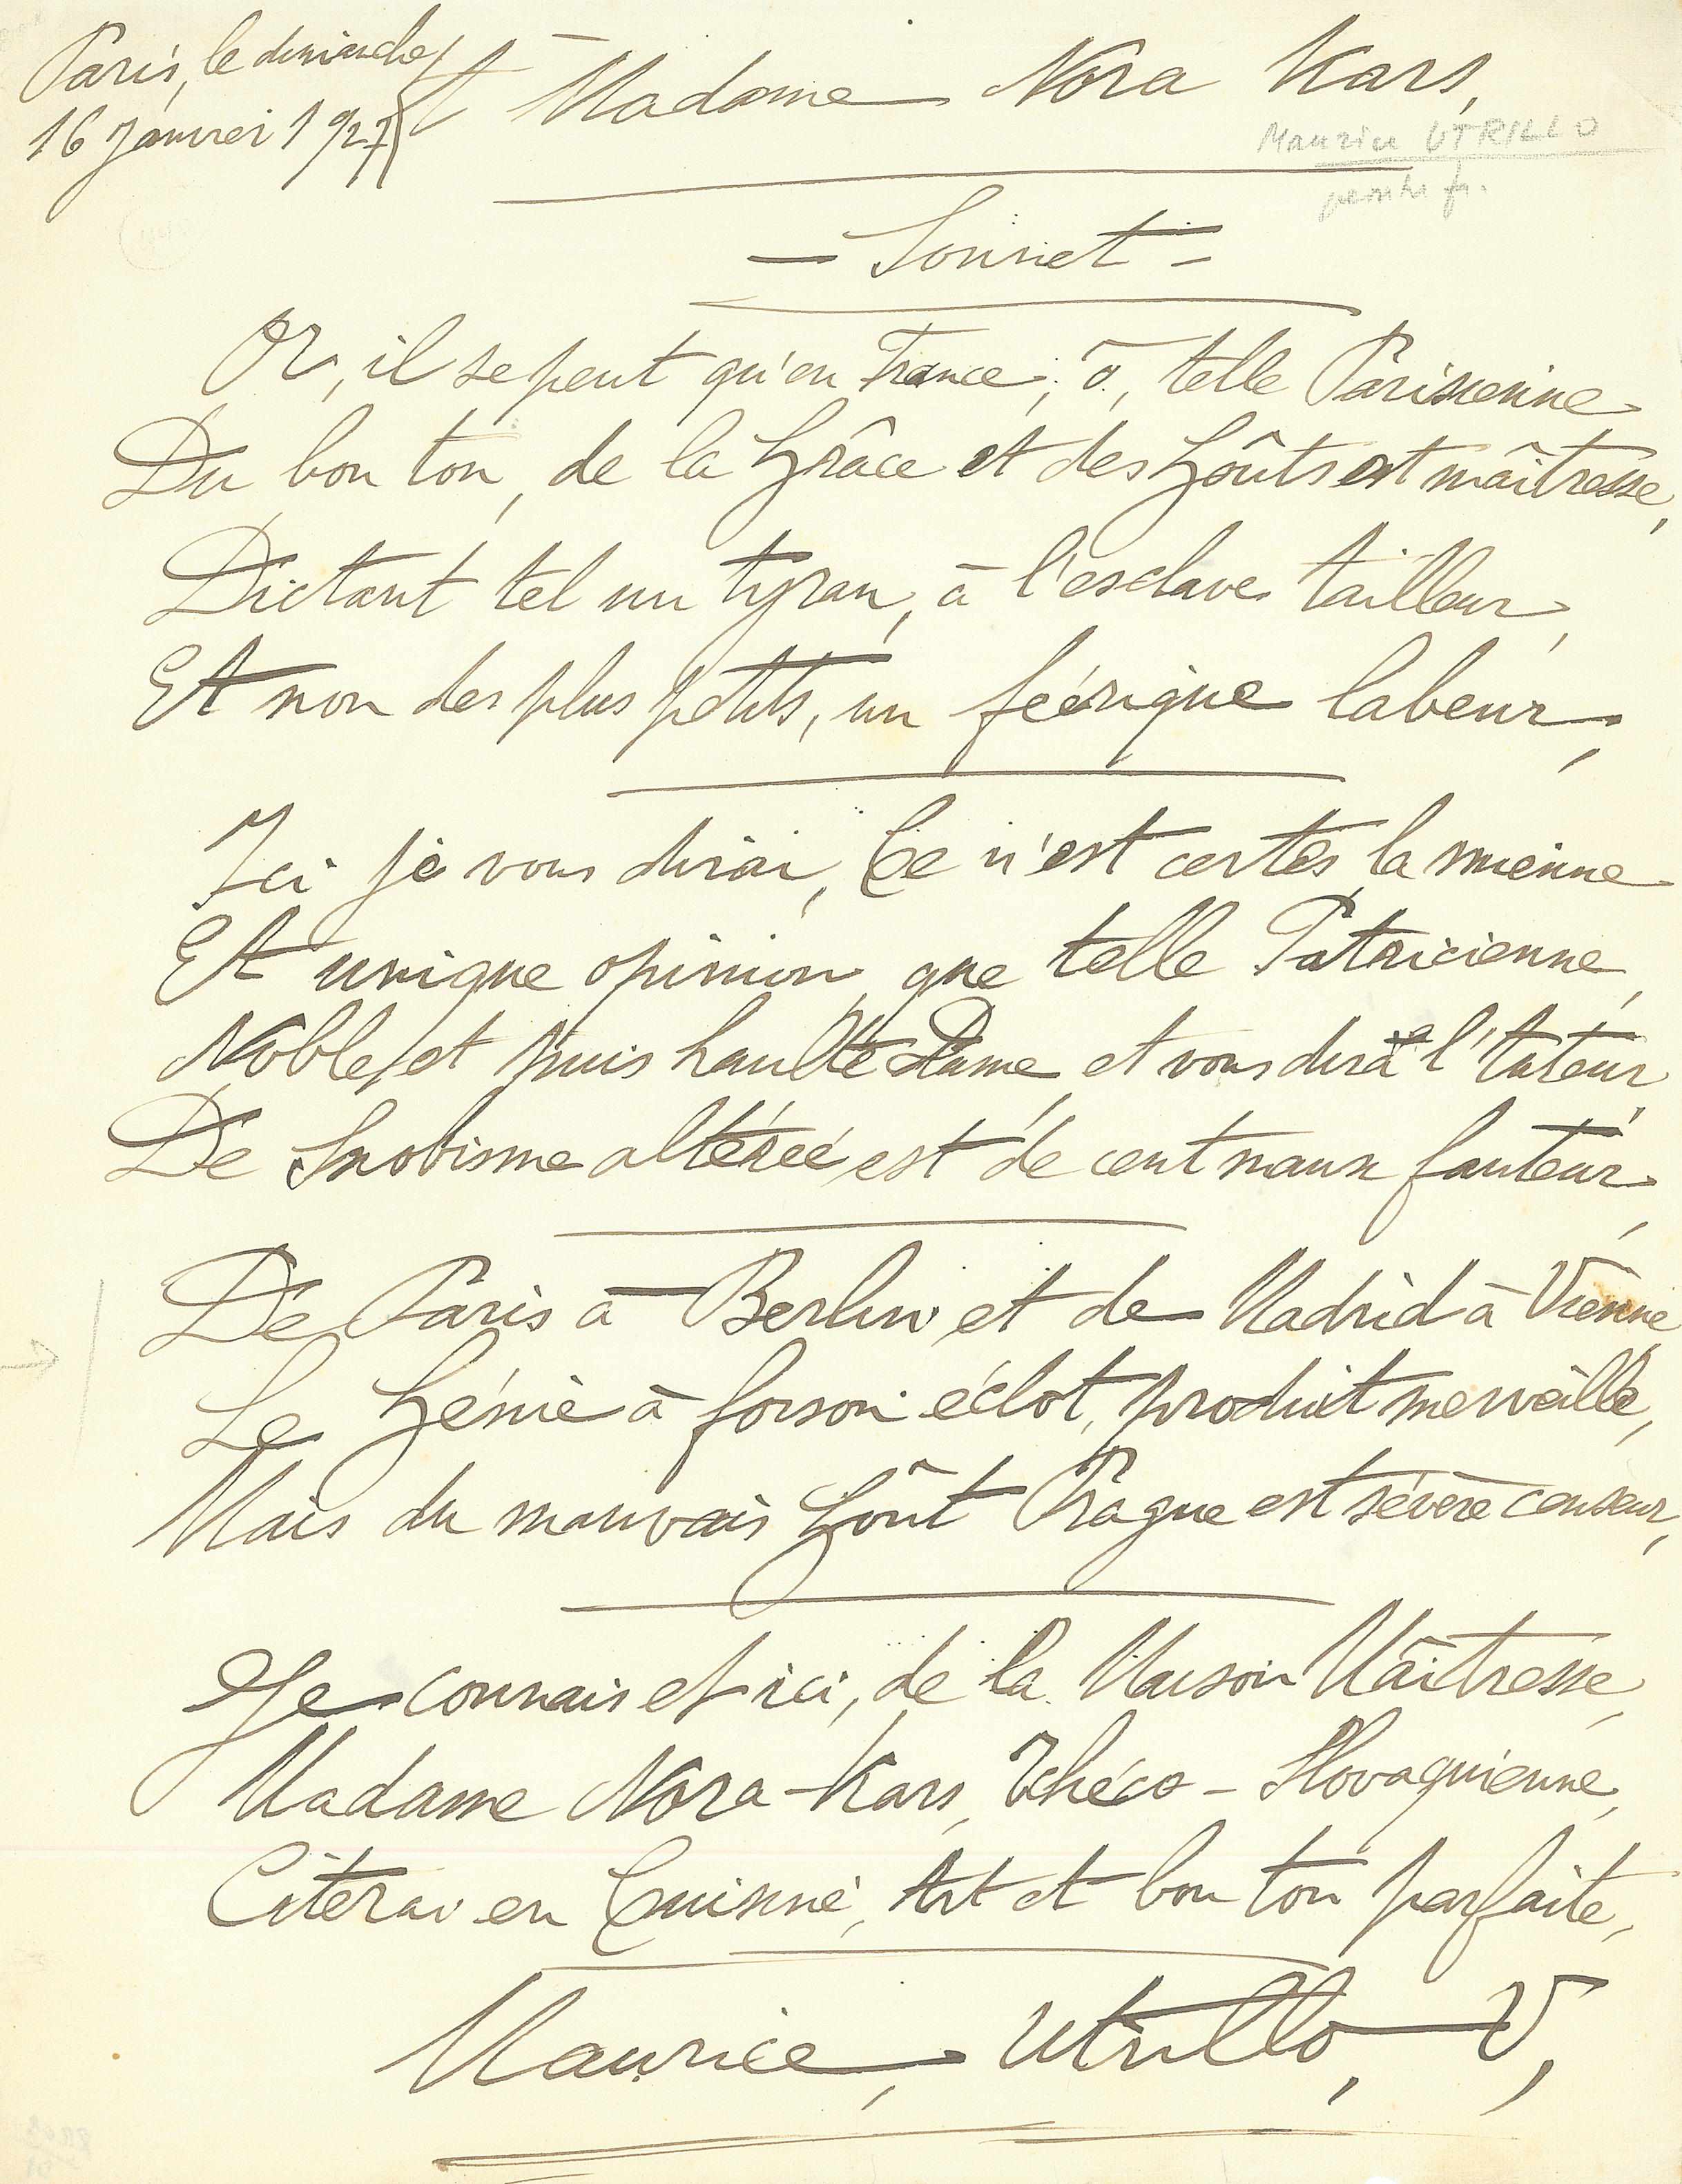 Paris, le dimanche
16 Janvier 1927
A Madame Nora Kars,
Maurice UTRILLO
peintre fr.
— Sonnet —
Or, il se peut qu'en France, ô, telle Parisienne
Du bon ton, de la Grâce et des Goûts est maîtresse,
Dictant tel un tyran, à l'esclave tailleur,
Et non des plus petits, un féérique labeur,
Ici je vous dirai, Ce n'est certes la mienne
Et unique opinion, que telle Patricienne,
Noble, et puis haulte Dame, et vous dira l'tuteur,
De Snobisme altérée est de cent maux fauteur,
De Paris à Berlin, et de Madrid à Vienne,
Le Génie à foison éclot, produit merveille,
Mais du mauvais Goût Prague est sévère censeur,
Je connais et ici, de la Maison Maîtresse,
Madame Nora-Kars, Tchéco-Slovaquienne,
Citerai en Cuisine, Art et bon ton parfaite,
Maurice, Utrillo, V,